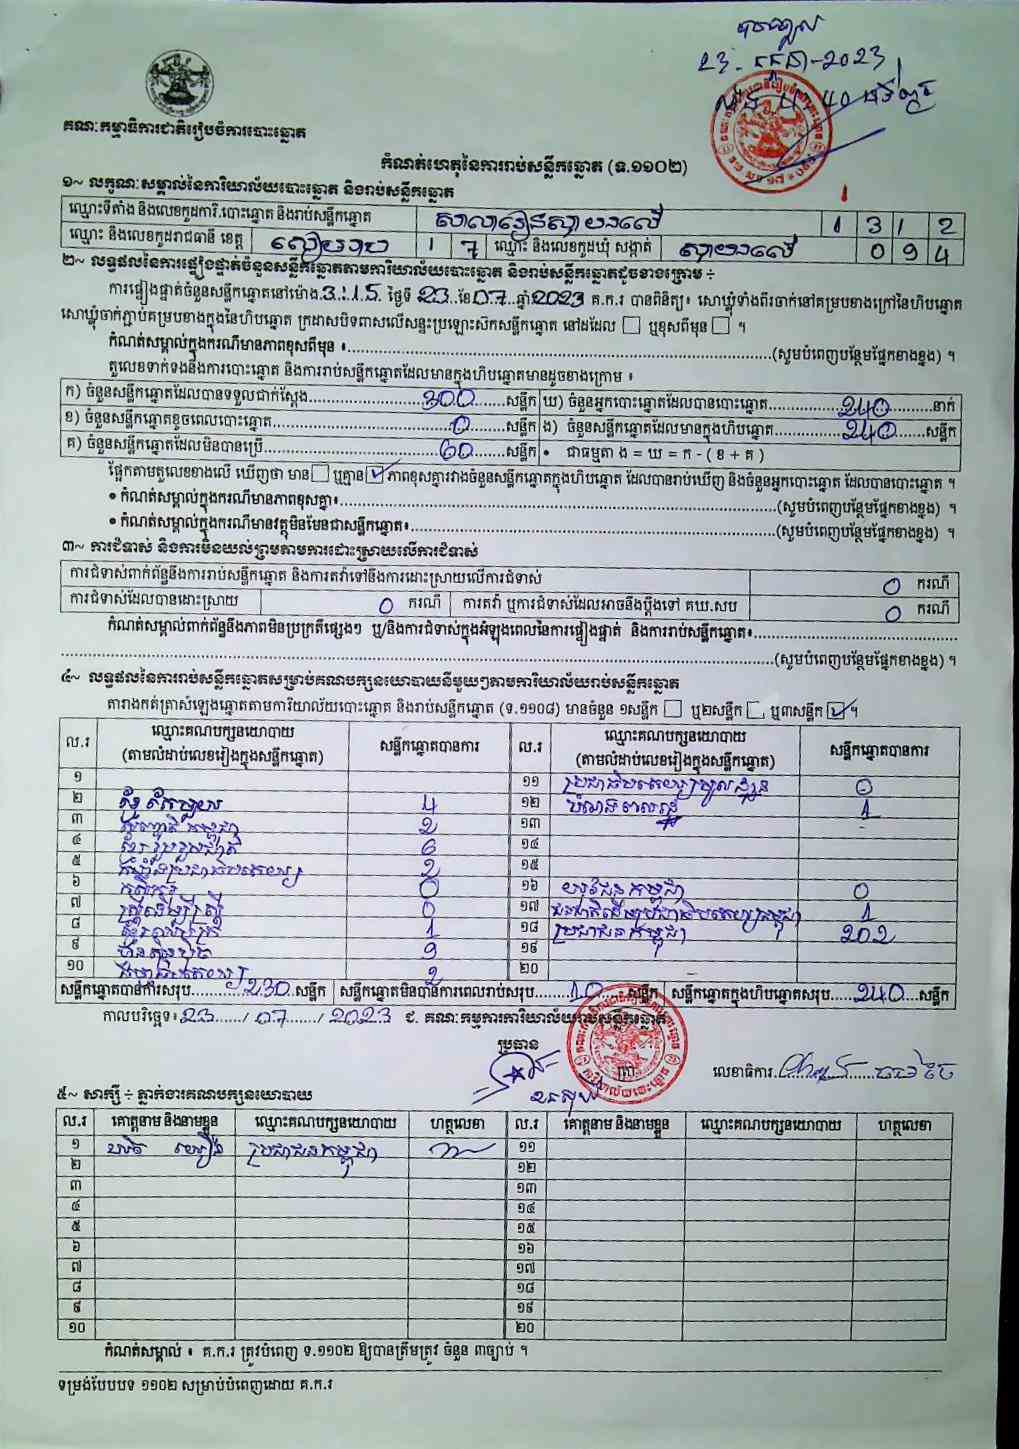 បានចូល
23-កក្កដា-2023
គណៈកម្មាធិការជាតិរៀបចំការបោះឆ្នោត
កំណត់ហេតុនៃការរាប់សន្លឹកឆ្នោត (ទ.១១០២)
១~ លក្ខណៈសម្គាល់នៃការិយាល័យបោះឆ្នោត និងរាប់សន្លឹកឆ្នោត
ឈ្មោះទីតាំង និងលេខកូដការិ.បោះឆ្នោត និងរាប់សន្លឹកឆ្នោត សាលារៀនស្វាយដងលើ 1 3 1 2
ឈ្មោះ និងលេខកូដរាជធានី ខេត្ត សៀមរាប 1 7 ឈ្មោះ និងលេខកូដឃុំ សង្កាត់ 0 9 4
២~ លទ្ធផលនៃការផ្ទៀងផ្ទាត់ចំនួនសន្លឹកឆ្នោតតាមការិយាល័យបោះឆ្នោត និងរាប់សន្លឹកឆ្នោតដូចខាងក្រោម ÷
ការផ្ទៀងផ្ទាត់ចំនួនសន្លឹកឆ្នោតនៅម៉ោង 3:15 ថ្ងៃទី 23 ខែ 07 ឆ្នាំ 2023 គ.ក.រ បានពិនិត្យ៖ សោឃ្លុំទាំងពីរចាក់នៅគម្របខាងក្រៅនៃហិបឆ្នោត
សោឃ្លុំចាក់ភ្ជាប់គម្របខាងក្នុងនៃហិបឆ្នោត ក្រដាសបិទពាសលើសន្ទះប្រឡោះស៊កសន្លឹកឆ្នោត នៅដដែល ☐ ឬខុសពីមុន ☐ ។
កំណត់សម្គាល់ក្នុងករណីមានភាពខុសពីមុន ៖...(សូមបំពេញបន្ថែមផ្នែកខាងខ្នង) ។
តួលេខទាក់ទងនឹងការបោះឆ្នោត និងការរាប់សន្លឹកឆ្នោតដែលមានក្នុងហិបឆ្នោតមានដូចខាងក្រោម ៖
ក) ចំនួនសន្លឹកឆ្នោតដែលបានទទួលជាក់ស្តែង...300...សន្លឹក ឃ) ចំនួនអ្នកបោះឆ្នោតដែលបានបោះឆ្នោត...240...នាក់
ខ) ចំនួនសន្លឹកឆ្នោតខូចពេលបោះឆ្នោត...0...សន្លឹក ង) ចំនួនសន្លឹកឆ្នោតដែលមានក្នុងហិបឆ្នោត...240...សន្លឹក
គ) ចំនួនសន្លឹកឆ្នោតដែលមិនបានប្រើ...60...សន្លឹក • ជាធម្មតា ង = ឃ = ក - ( ខ + គ )
ផ្អែកតាមតួលេខខាងលើ ឃើញថា មាន ☐ ឬគ្មាន ☑ ភាពខុសគ្នារវាងចំនួនសន្លឹកឆ្នោតក្នុងហិបឆ្នោត ដែលបានរាប់ឃើញ និងចំនួនអ្នកបោះឆ្នោត ដែលបានបោះឆ្នោត ។
• កំណត់សម្គាល់ក្នុងករណីមានភាពខុសគ្នា៖...(សូមបំពេញបន្ថែមផ្នែកខាងខ្នង) ។
• កំណត់សម្គាល់ក្នុងករណីមានវត្ថុមិនមែនជាសន្លឹកឆ្នោត៖...(សូមបំពេញបន្ថែមផ្នែកខាងខ្នង) ។
៣~ ការជំទាស់ និងការមិនយល់ព្រមតាមការដោះស្រាយលើការជំទាស់
ការជំទាស់ពាក់ព័ន្ធនឹងការរាប់សន្លឹកឆ្នោត និងការតវ៉ាទៅនឹងការដោះស្រាយលើការជំទាស់ 0 ករណី
ការជំទាស់ដែលបានដោះស្រាយ 0 ករណី ការតវ៉ា ឬការជំទាស់ដែលអាចនឹងប្តឹងទៅ គឃ.សប 0 ករណី
កំណត់សម្គាល់ពាក់ព័ន្ធនឹងភាពមិនប្រក្រតីផ្សេងៗ ឬ/និងការជំទាស់ក្នុងអំឡុងពេលនៃការផ្ទៀងផ្ទាត់ និងការរាប់សន្លឹកឆ្នោត៖...
...(សូមបំពេញបន្ថែមផ្នែកខាងខ្នង) ។
៤~ លទ្ធផលនៃការរាប់សន្លឹកឆ្នោតសម្រាប់គណបក្សនយោបាយនីមួយៗតាមការិយាល័យរាប់សន្លឹកឆ្នោត
តារាងកត់ត្រាសំឡេងឆ្នោតតាមការិយាល័យបោះឆ្នោត និងរាប់សន្លឹកឆ្នោត (ទ.១១០៨) មានចំនួន ១សន្លឹក ☐ ឬ២សន្លឹក ☐ ឬ៣សន្លឹក ☑ ។
ល.រ ឈ្មោះគណបក្សនយោបាយ (តាមលំដាប់លេខរៀងក្នុងសន្លឹកឆ្នោត) សន្លឹកឆ្នោតបានការ ល.រ ឈ្មោះគណបក្សនយោបាយ (តាមលំដាប់លេខរៀងក្នុងសន្លឹកឆ្នោត) សន្លឹកឆ្នោតបានការ
១ ១១ 0
២ 4 ១២ 1
៣ 2 ១៣
៤ 6 ១៤
៥ 2 ១៥
៦ កសិករ 0 ១៦ យុវជនកម្ពុជា 0
៧ ស្ត្រីដើម្បីស្ត្រី 0 ១៧ 1
៨ 1 ១៨ ប្រជាជនកម្ពុជា 202
៩ ហ្វ៊ុនស៊ិនប៉ិច 9 ១៩
១០ 2 ២០
សន្លឹកឆ្នោតបានការសរុប...230...សន្លឹក សន្លឹកឆ្នោតមិនបានការពេលរាប់សរុប...10...សន្លឹក សន្លឹកឆ្នោតក្នុងហិបឆ្នោតសរុប...240...សន្លឹក
កាលបរិច្ឆេទ៖ 23 / 07 / 2023 ជ. គណៈកម្មការការិយាល័យរាប់សន្លឹកឆ្នោត
ប្រធាន
លេខាធិការ
៥~ សាក្សី ÷ ភ្នាក់ងារគណបក្សនយោបាយ
ល.រ គោត្តនាម និងនាមខ្លួន ឈ្មោះគណបក្សនយោបាយ ហត្ថលេខា ល.រ គោត្តនាម និងនាមខ្លួន ឈ្មោះគណបក្សនយោបាយ ហត្ថលេខា
១ ប្រជាជនកម្ពុជា ១១
២ ១២
៣ ១៣
៤ ១៤
៥ ១៥
៦ ១៦
៧ ១៧
៨ ១៨
៩ ១៩
១០ ២០
កំណត់សម្គាល់ ៖ គ.ក.រ ត្រូវបំពេញ ទ.១១០២ ឱ្យបានត្រឹមត្រូវ ចំនួន ៣ច្បាប់ ។
ទម្រង់បែបបទ ១១០២ សម្រាប់បំពេញដោយ គ.ក.រ